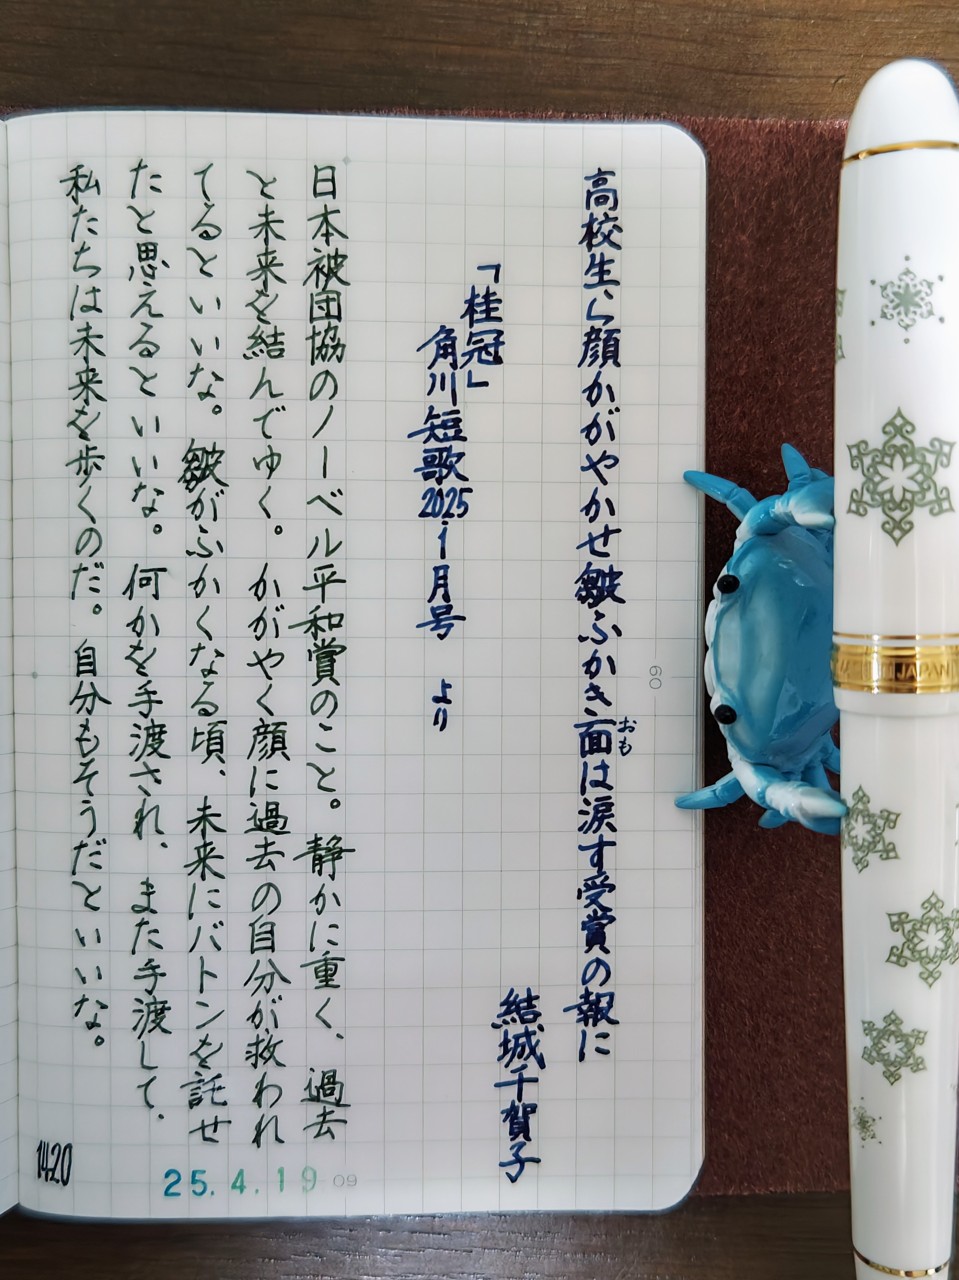 高校生ら顔かがやかせ皺ふかき面は涙す受賞の報に
おも
結城千賀子
「桂冠」
角川短歌2025・1月号　より
日本被団協のノーベル平和賞のこと。静かに重く、過去
と未来を結んでゆく。かがやく顔に過去の自分が救われ
てるといいな。皺がふかくなる頃、未来にバトンを託せ
たと思えるといいな。何かを手渡され、また手渡して、
私たちは未来を歩くのだ。自分もそうだといいな。
1420
25.4.19
09
60
JAPAN